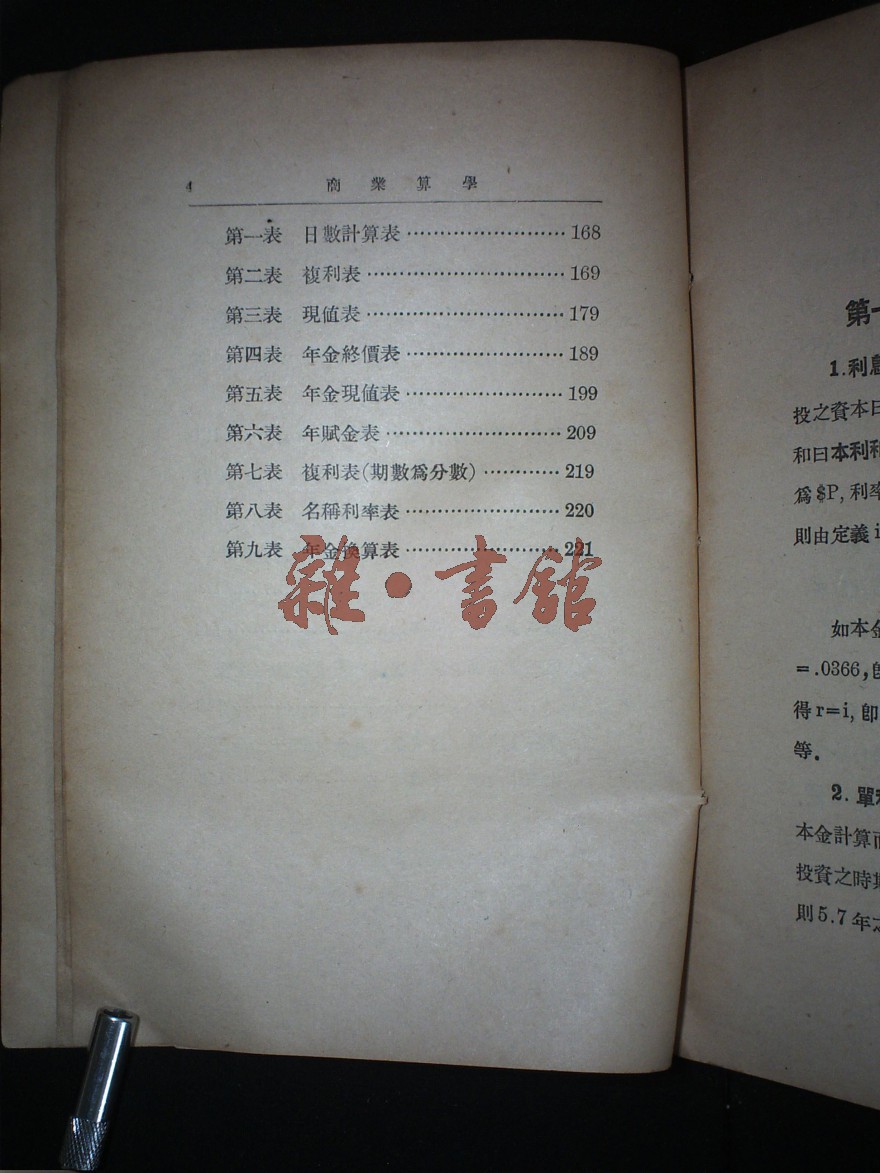 4 商業算學
第一表 日數計算表························168
第二表 複利表······························169
第三表 現値表······························179
第四表 年金終價表························189
第五表 年金現値表························199
第六表 年賦金表···························209
第七表 複利表(期數爲分數)············219
第八表 名稱利率表························220
第九表 年金換算表························221
雜·書館
第一
1.利息
投之資本曰
和曰本利和
爲$P,利率
則由定義i
如本金
=.0366,卽
得r=i,卽
等.
2.單利
本金計算而
投資之時期
則5.7年之